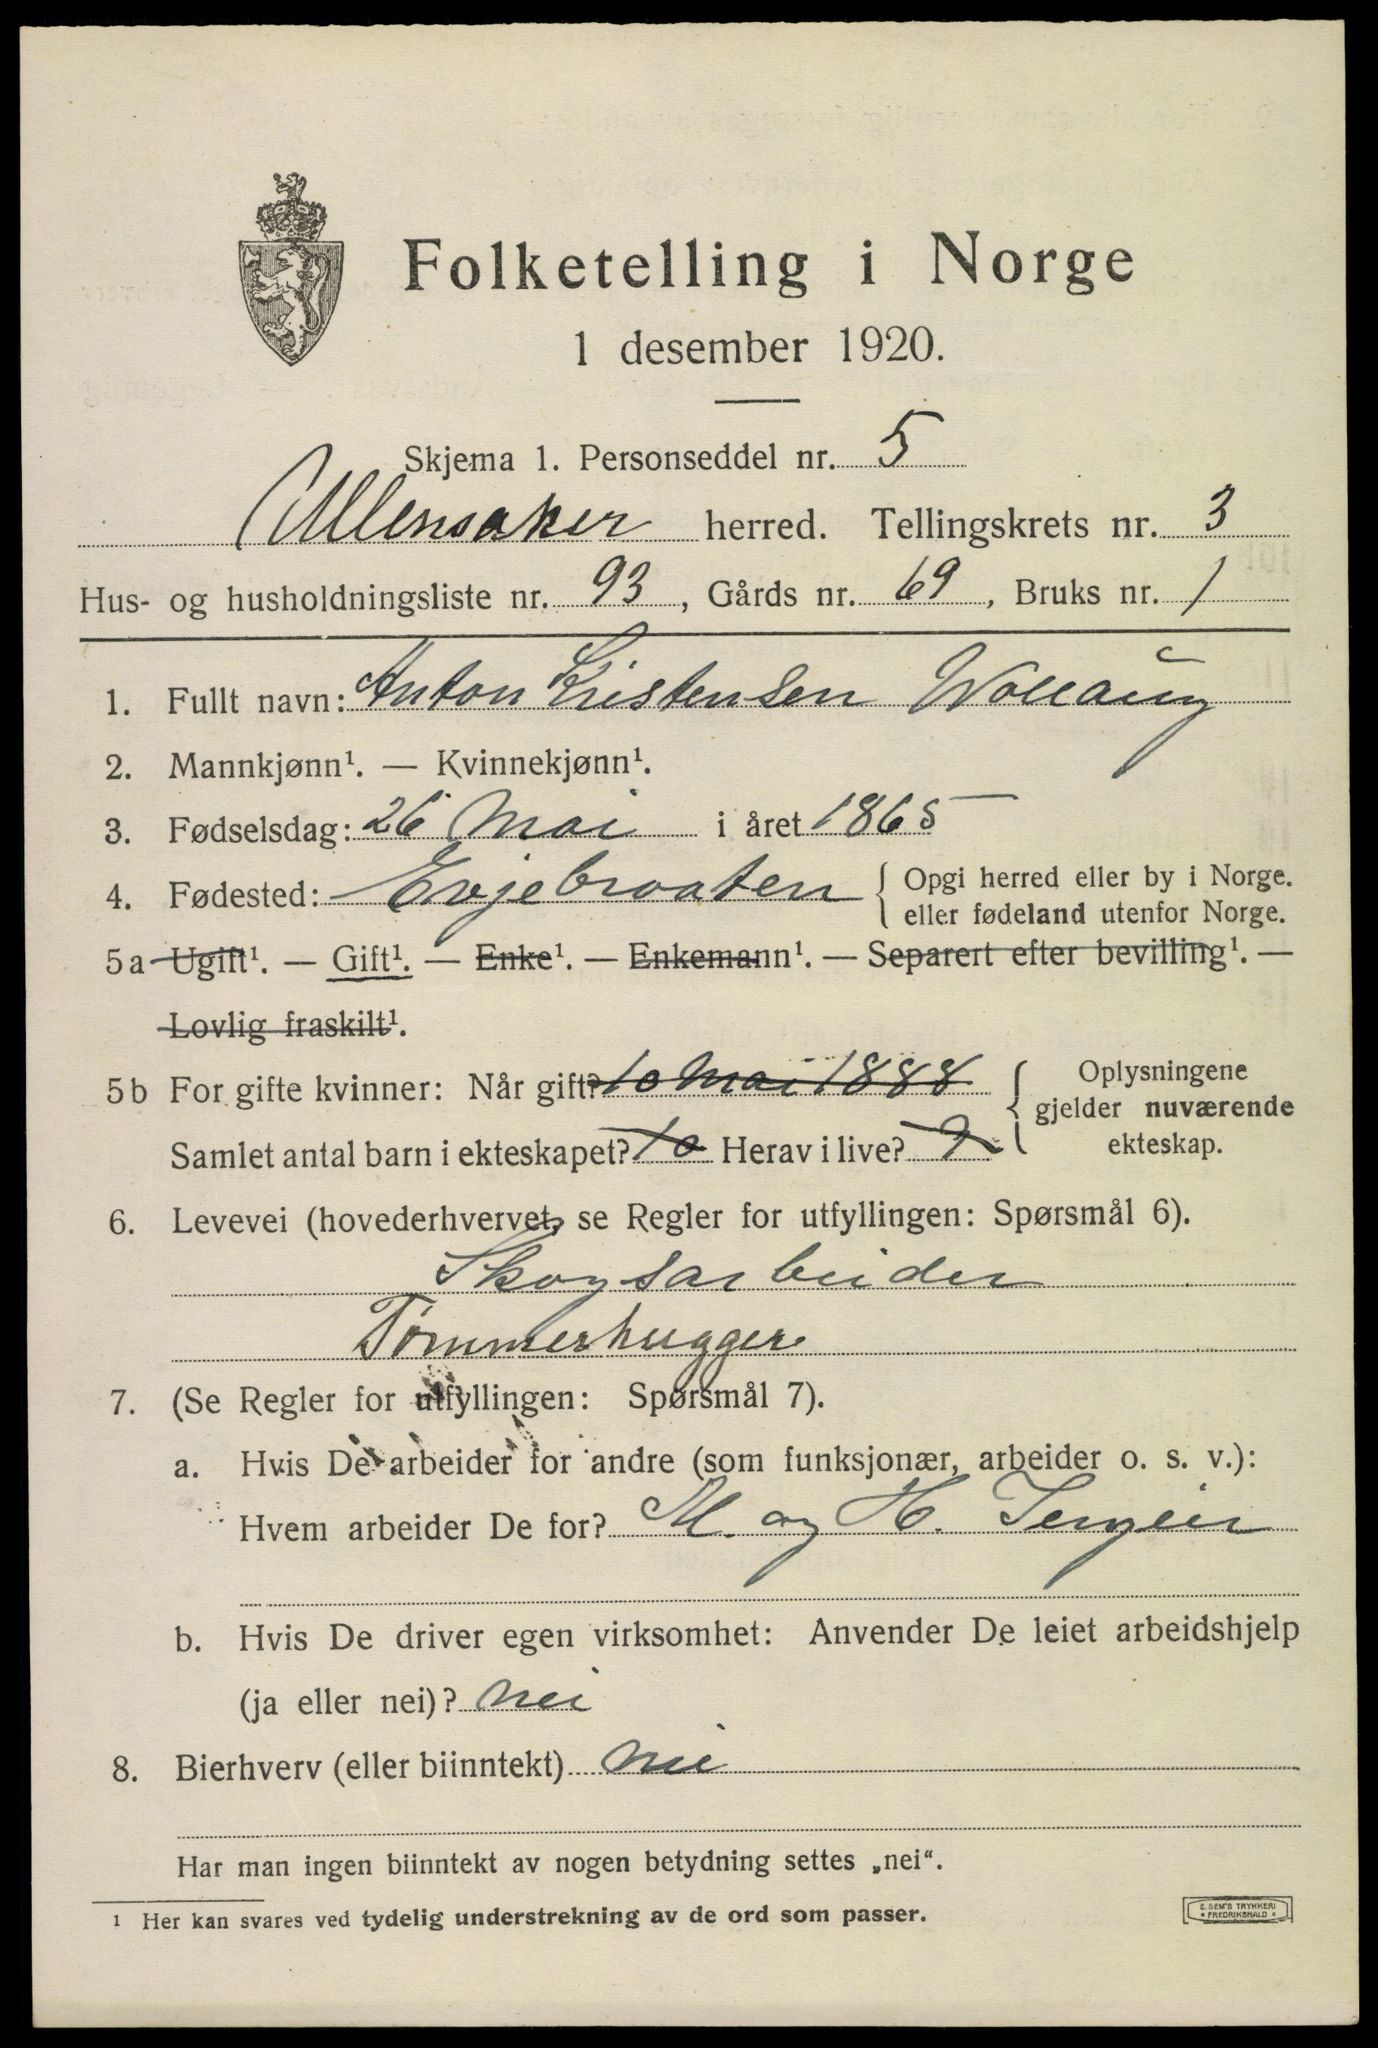 Folketelling i Norge
1 desember 1920.
Skjema 1. Personseddel nr. 5
Ullensaker herred. Tellingskrets nr. 3
Hus- og husholdningsliste nr. 93, Gårds nr. 69, Bruks nr. 1
1. Fullt navn: Anton Kristensen
2. Mannkjønn¹. — Kvinnekjønn¹.
3. Fødselsdag: 26 Mai i året 1865
4. Fødested: Evjebraaten { Opgi herred eller by i Norge.
eller fødeland utenfor Norge.
5a Ugift¹. — Gift¹. — Enke¹. — Enkemann¹. — Separert efter bevilling¹. —
Lovlig fraskilt¹.
5b For gifte kvinner: Når gift? 10 Mai 1888 { Oplysningene
gjelder nuværende
Samlet antal barn i ekteskapet? 10 Herav i live? 9 ekteskap.
6. Levevei (hovederhvervet, se Regler for utfyllingen: Spørsmål 6).
Skogsarbeider
Tømmerhugger
7. (Se Regler for utfyllingen: Spørsmål 7).
a. Hvis De arbeider for andre (som funksjonær, arbeider o. s. v.):
Hvem arbeider De for? M. og H.
b. Hvis De driver egen virksomhet: Anvender De leiet arbeidshjelp
(ja eller nei)? nei
8. Bierhverv (eller biinntekt) nei
Har man ingen biinntekt av nogen betydning settes „nei“.
¹ Her kan svares ved tydelig understrekning av de ord som passer.
E. SEM'S TRYKKERI
* FREDRIKSHALD *